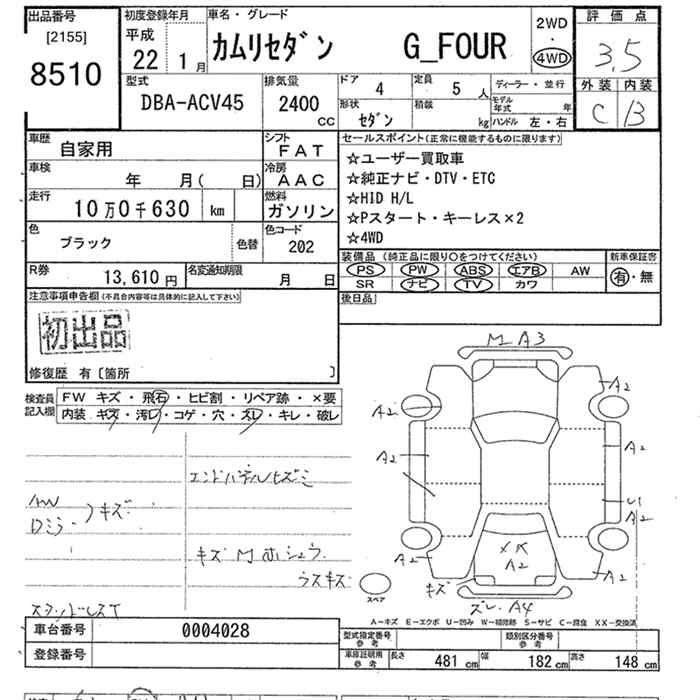 出品番号
[2155]
8510
初度登録年月
平成
22 1月
車名・グレード
カムリセダン G_FOUR
2WD
・
4WD
評価点
3,5
外装 内装
C B
型式
DBA-ACV45
排気量
2400
cc
ドア 4
定員 5人
ディーラー・並行
形状 セダン
積載 kg
モデル年式 年
ハンドル 左・右
車歴
自家用
シフト
FAT
車検
年 月( 日)
冷房
AAC
走行
10万0千630 km
燃料
ガソリン
色
ブラック
色替
色コード
202
R券
13,610円
名変通知期限
月 日
セールスポイント(正常に機能するものに限ります)
☆ユーザー買取車
☆純正ナビ・DTV・ETC
☆HID H/L
☆Pスタート・キーレス×2
☆4WD
装備品(純正品に限り○をつけてください)
PS PW ABS エアB AW
SR ナビ TV カワ
新車保証書
有・無
後日品
注意事項申告欄(不具合内容等は具体的に記入して下さい)
初出品
修復歴 有〔箇所 〕
検査員記入欄
FW キズ・飛石・ヒビ割・リペア跡・×要
内装 キズ・汚レ・コゲ・穴・スレ・キレ・破レ
エンドパネルヒズミ
AW
Dミラー
キズ
キズ M ホシュウ
ラスキズ
M A3
A2
A2
A2
A2
A2
A2
A2
XX
A2
キズ
A2
スレ. A4
スペア
A-キズ E-エクボ U-凹み W-補修跡 S-サビ C-腐食 XX-交換済
車台番号 0004028
登録番号
型式指定番号参考
類別区分番号参考
車庫証明用参考
長さ 481cm
幅 182cm
高さ 148cm